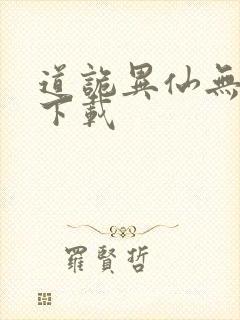 道詭異仙無
下載
羅賢哲